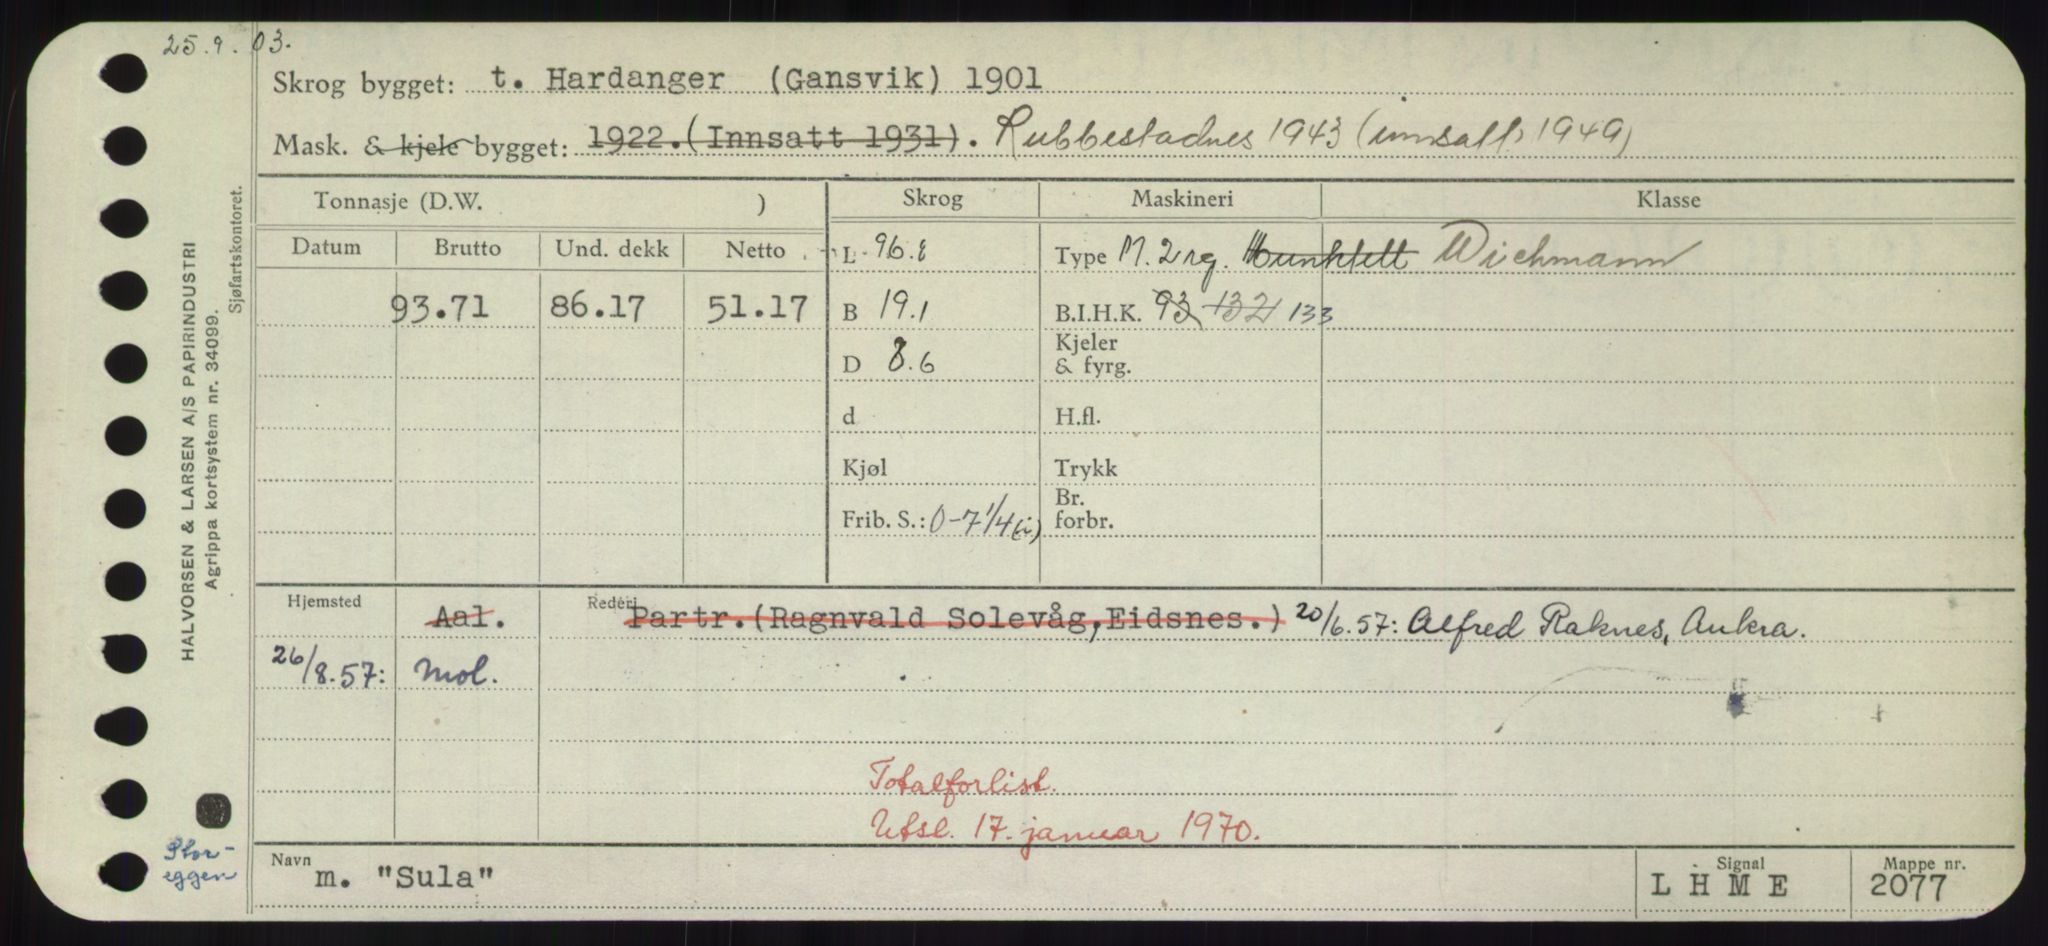 25.9.03.
Skrog bygget: t. Hardanger (Gansvik) 1901
Mask. & kjele bygget: 1922.(Innsatt 1931). Rubbestadnes 1943 (innsatt 1949)
Tonnasje (D.W. ) Skrog Maskineri Klasse
Datum Brutto Und. dekk Netto L 96.8 Type M. 2 rg. Wichmann
93.71 86.17 51.17 B 19.1 B.I.H.K. 93 132 133
D 8.6 Kjeler & fyrg.
d H.fl.
Kjøl Trykk
Frib. S.: 0-7 1/4 (i) Br. forbr.
Hjemsted Aal. Rederi Partr.(Ragnvald Solevåg,Eidsnes.) 20/6.57: Alfred Raknes, Aukra.
26/8.57: Mol.
Totalforlist.
Utsl. 17. januar 1970.
Navn m. "Sula" Signal L H M E Mappe nr. 2077
HALVORSEN & LARSEN A/S PAPIRINDUSTRI
Agrippa kortsystem nr. 34099.
Sjøfartskontoret.
Stor-
eggen